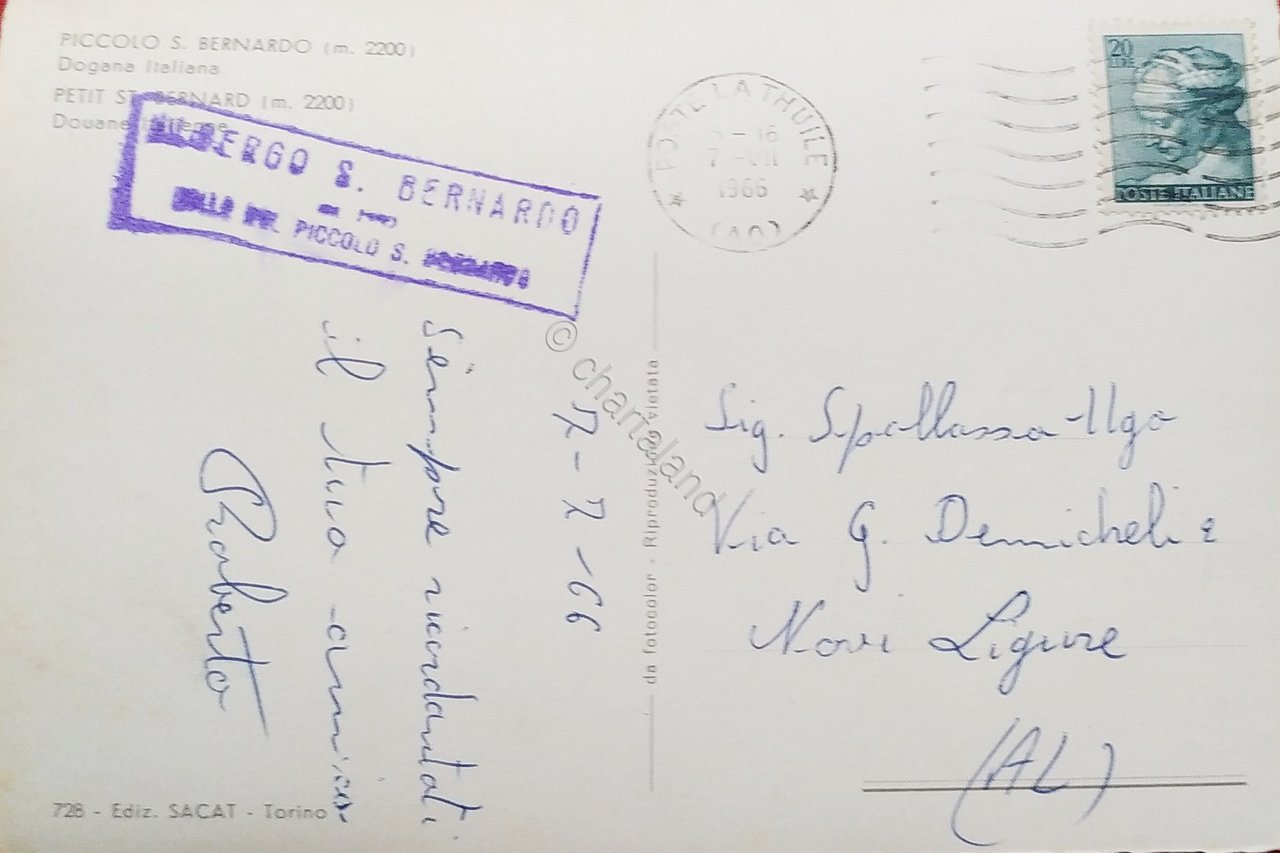 PICCOLO S. BERNARDO (m. 2200)
Dogana Italiana
PETIT ST. BERNARD (m. 2200)
Douane Italienne
ALBERGO S. BERNARDO
PICCOLO S. BERNARDO
POSTE LA THUILE
- 16
7 - VII
1966
(AO)
20
LIRE
POSTE ITALIANE
7-7-66
Sempre ricordantoti
il tuo amico
Roberto
© chartaland
da fotocolor - Riproduzione vietata
Sig. Spallassa Ugo
Via G. Demicheli 2
Novi Ligure
(AL)
728 - Ediz. SACAT - Torino